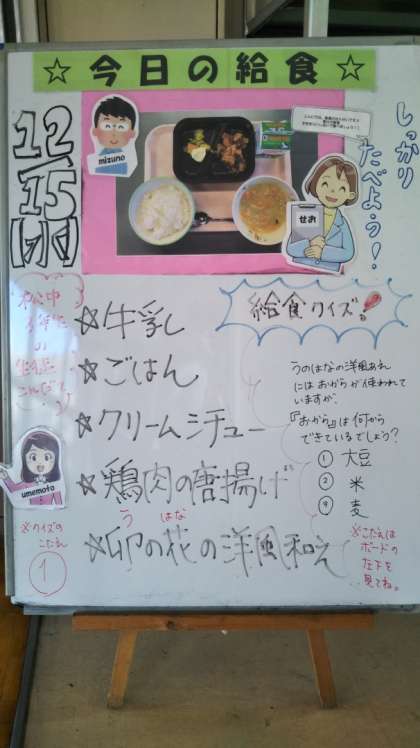 ☆今日の給食☆
12/15
mizuno
せお
しっかり
たべよう！
☆牛乳
☆ごはん
☆クリームシチュー
☆鶏肉の唐揚げ
う はな
☆卯の花の洋風和え
給食クイズ！
うのはなの洋風あえ
にはおからが使われて
いますが、
『おから』は何から
できているでしょう？
① 大豆
② 米
麦
※こたえは
ボードの
左下を
見てね。
umemoto
※クイズの
こたえ
①